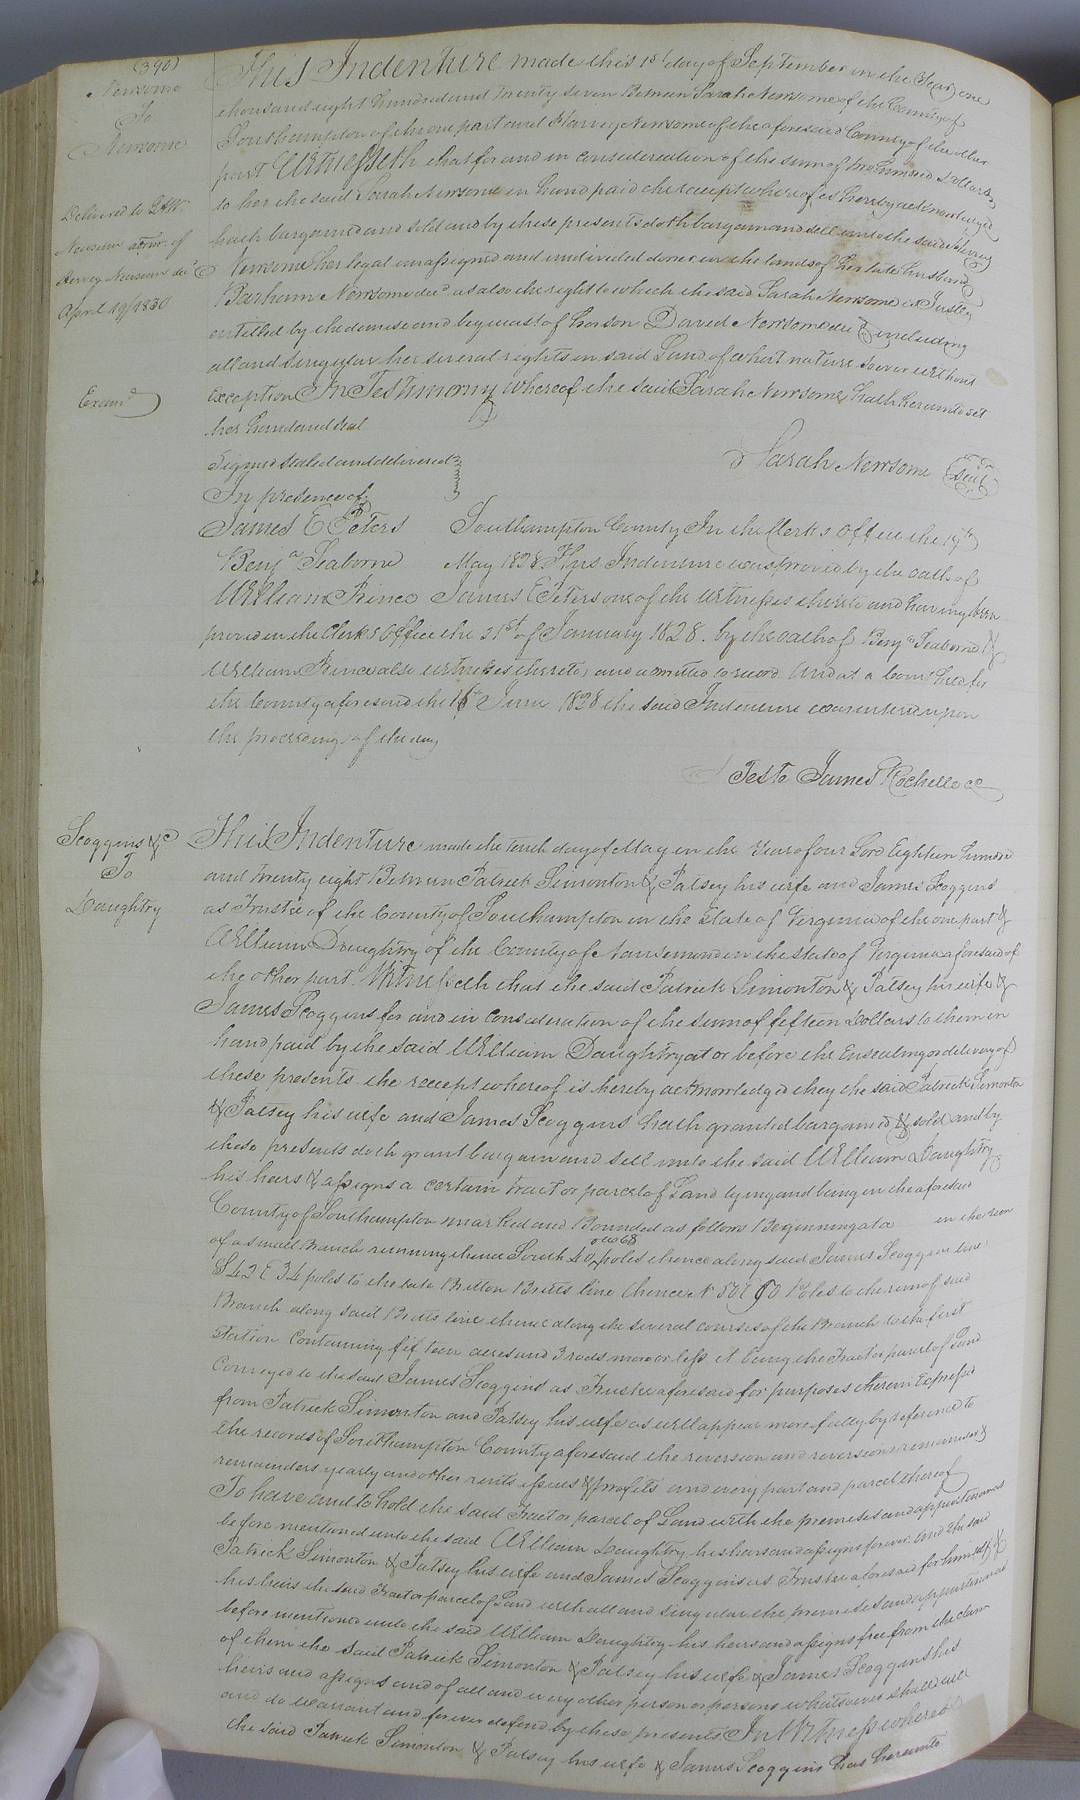 (390)
Newsome
To
Newsome
Delivered to
Newsom admr. of
Harvey Newsom decd
April 19/1830
Examd
This Indenture made this 1st day of September in the Year one
thousand eight hundred and twenty seven Between Sarah Newsome of the County of
Southampton of the one part and Harvey Newsome of the aforesaid County of the other
part Witnesseth that for and in consideration of the sum of hundred Dollars
to her the said Sarah Newsome in hand paid the receipt whereof is hereby acknowledged
hath bargained and sold and by these presents doth bargain and sell unto the said Harvey
Newsome her legal unassigned and undivided dower in the lands of her late husband
Barham Newsome decd as also the right to which the said Sarah Newsome is Justly
entitled by the demise and bequest of her son David Newsome decd & including
all and singular her several rights in said Land of what nature soever without
exception In Testimony whereof the said Sarah Newsome hath hereunto set
her hand and seal
Signed sealed and delivered
In presence of
Sarah Newsome (seal)
James E Peters
Benja Seaborne
William Prince
Southampton County In the Clerks Office the 19th
May 1828 This Indenture was proved by the oath of
James E Peters one of the Witnesses thereto and having been
proved in the Clerks Office the 21st of January 1828. by the oath of Benja Seaborne &
William Prince also witnesses thereto, and admitted to record And at a Court held for
the County aforesaid the 16th June 1828 the said Indenture was entered upon
the proceedings of the day
Teste James Rochelle cc
Scoggins &c
To
Daughtry
This Indenture made the tenth day of May in the Year of our Lord Eighteen hundred
and twenty eight Between Patrick Simonton & Patsey his wife and James Scoggins
as Trustee of the County of Southampton in the State of Virginia of the one part &
William Daughtry of the County of Nansemond in the state of Virginia aforesaid of
the other part Witnesseth that the said Patrick Simonton & Patsey his wife &
James Scoggins for and in consideration of the sum of fifteen Dollars to them in
hand paid by the said William Daughtry at or before the Ensealing or delivery of
these presents the receipt whereof is hereby acknowledged they the said Patrick Simonton
& Patsey his wife and James Scoggins hath granted bargained & sold and by
these presents doth grant bargain and sell unto the said William Daughtry
his heirs & assigns a certain tract or parcel of Land lying and being in the aforesaid
County of Southampton marked and Bounded as follows Beginning at a in the run
of a small Branch running thence South 40 poles thence along said James Scoggins line
S 42 E 34 poles to the late Britton Britts line thence N 50 E 50 Poles to the run of said
Branch along said Britts line thence along the several courses of the Branch to the first
station Containing fifteen acres and 3 roods more or less it being the Tract or parcel of Land
Conveyed to the said James Scoggins as Trustee aforesaid for purposes therein Expressd
from Patrick Simonton and Patsey his wife as will appear more fully by reference to
the records of Southampton County aforesaid the reversion and reversions remainder &
remainders yearly and other rents issues & profits and every part and parcel thereof
To have and to hold the said Tract or parcel of Land with the premises and appurtenances
before mentioned unto the said William Daughtry his heirs and assigns forever. And the said
Patrick Simonton & Patsey his wife and James Scoggins as Trustee aforesaid for himself &
his heirs the said Tract or parcel of Land with all and singular the premises and appurtenances
before mentioned unto the said William Daughtry his heirs and assigns free from the claim
of them the said Patrick Simonton & Patsey his wife & James Scoggins his
heirs and assigns and of all and every other person or persons whatsoever shall will
and do warrant and forever defend by these presents In Witness whereof
the said Patrick Simonton & Patsey his wife & James Scoggins has hereunto